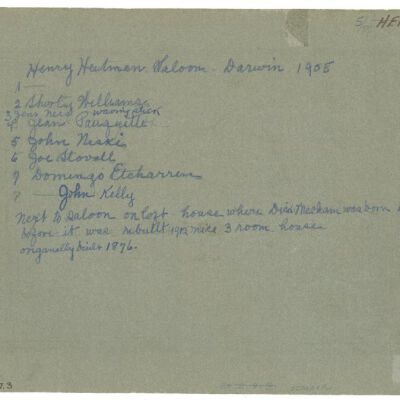 5_ HE
Henry Heitman Saloon - Darwin 1905
1 —
2 Shorty Williams
3 Jens Neis
4 Jean
5 John Niski
6 Joe Stovall
7 Domingo Etcharren
8 — John Kelly
Next to saloon on left house where Dick Mecham was born
before it was rebuilt 1902 nice 3 room house
origanally built 1876.
7.3